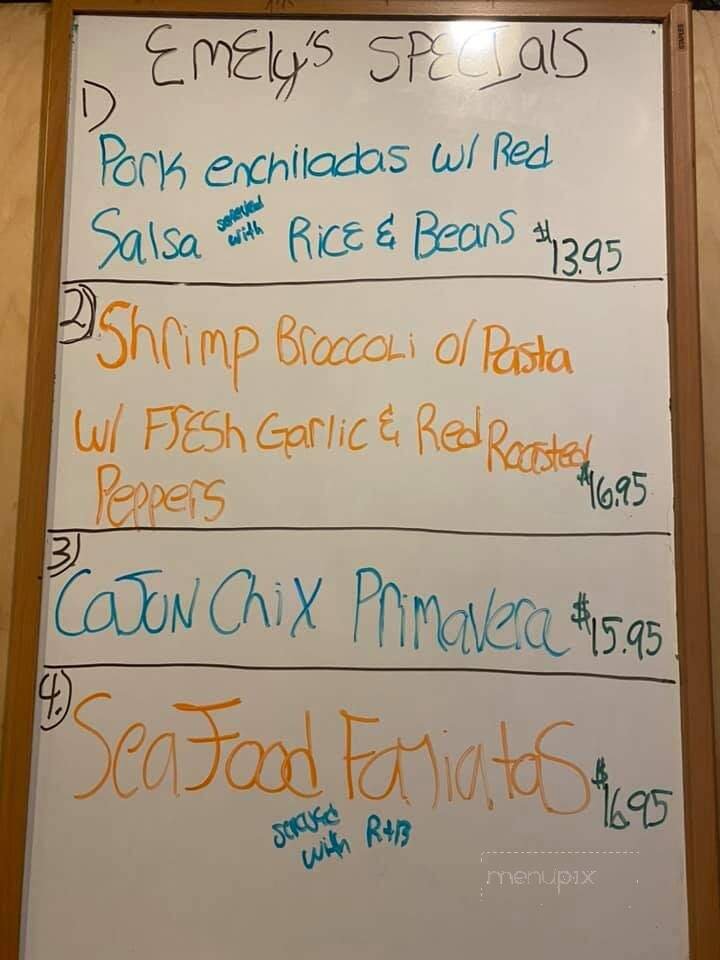 EmEly's SPECIals
1)
Pork enchiladas w/ Red
Salsa served with Rice & Beans $13.95
2) Shrimp Broccoli o/ Pasta
w/ FrESh Garlic & Red Roasted
Peppers $16.95
3)
CaJuN ChiX Primavera $15.95
4.) SeaFood Fajiatas $16.95
served
with R+B
menupix
STAPLES